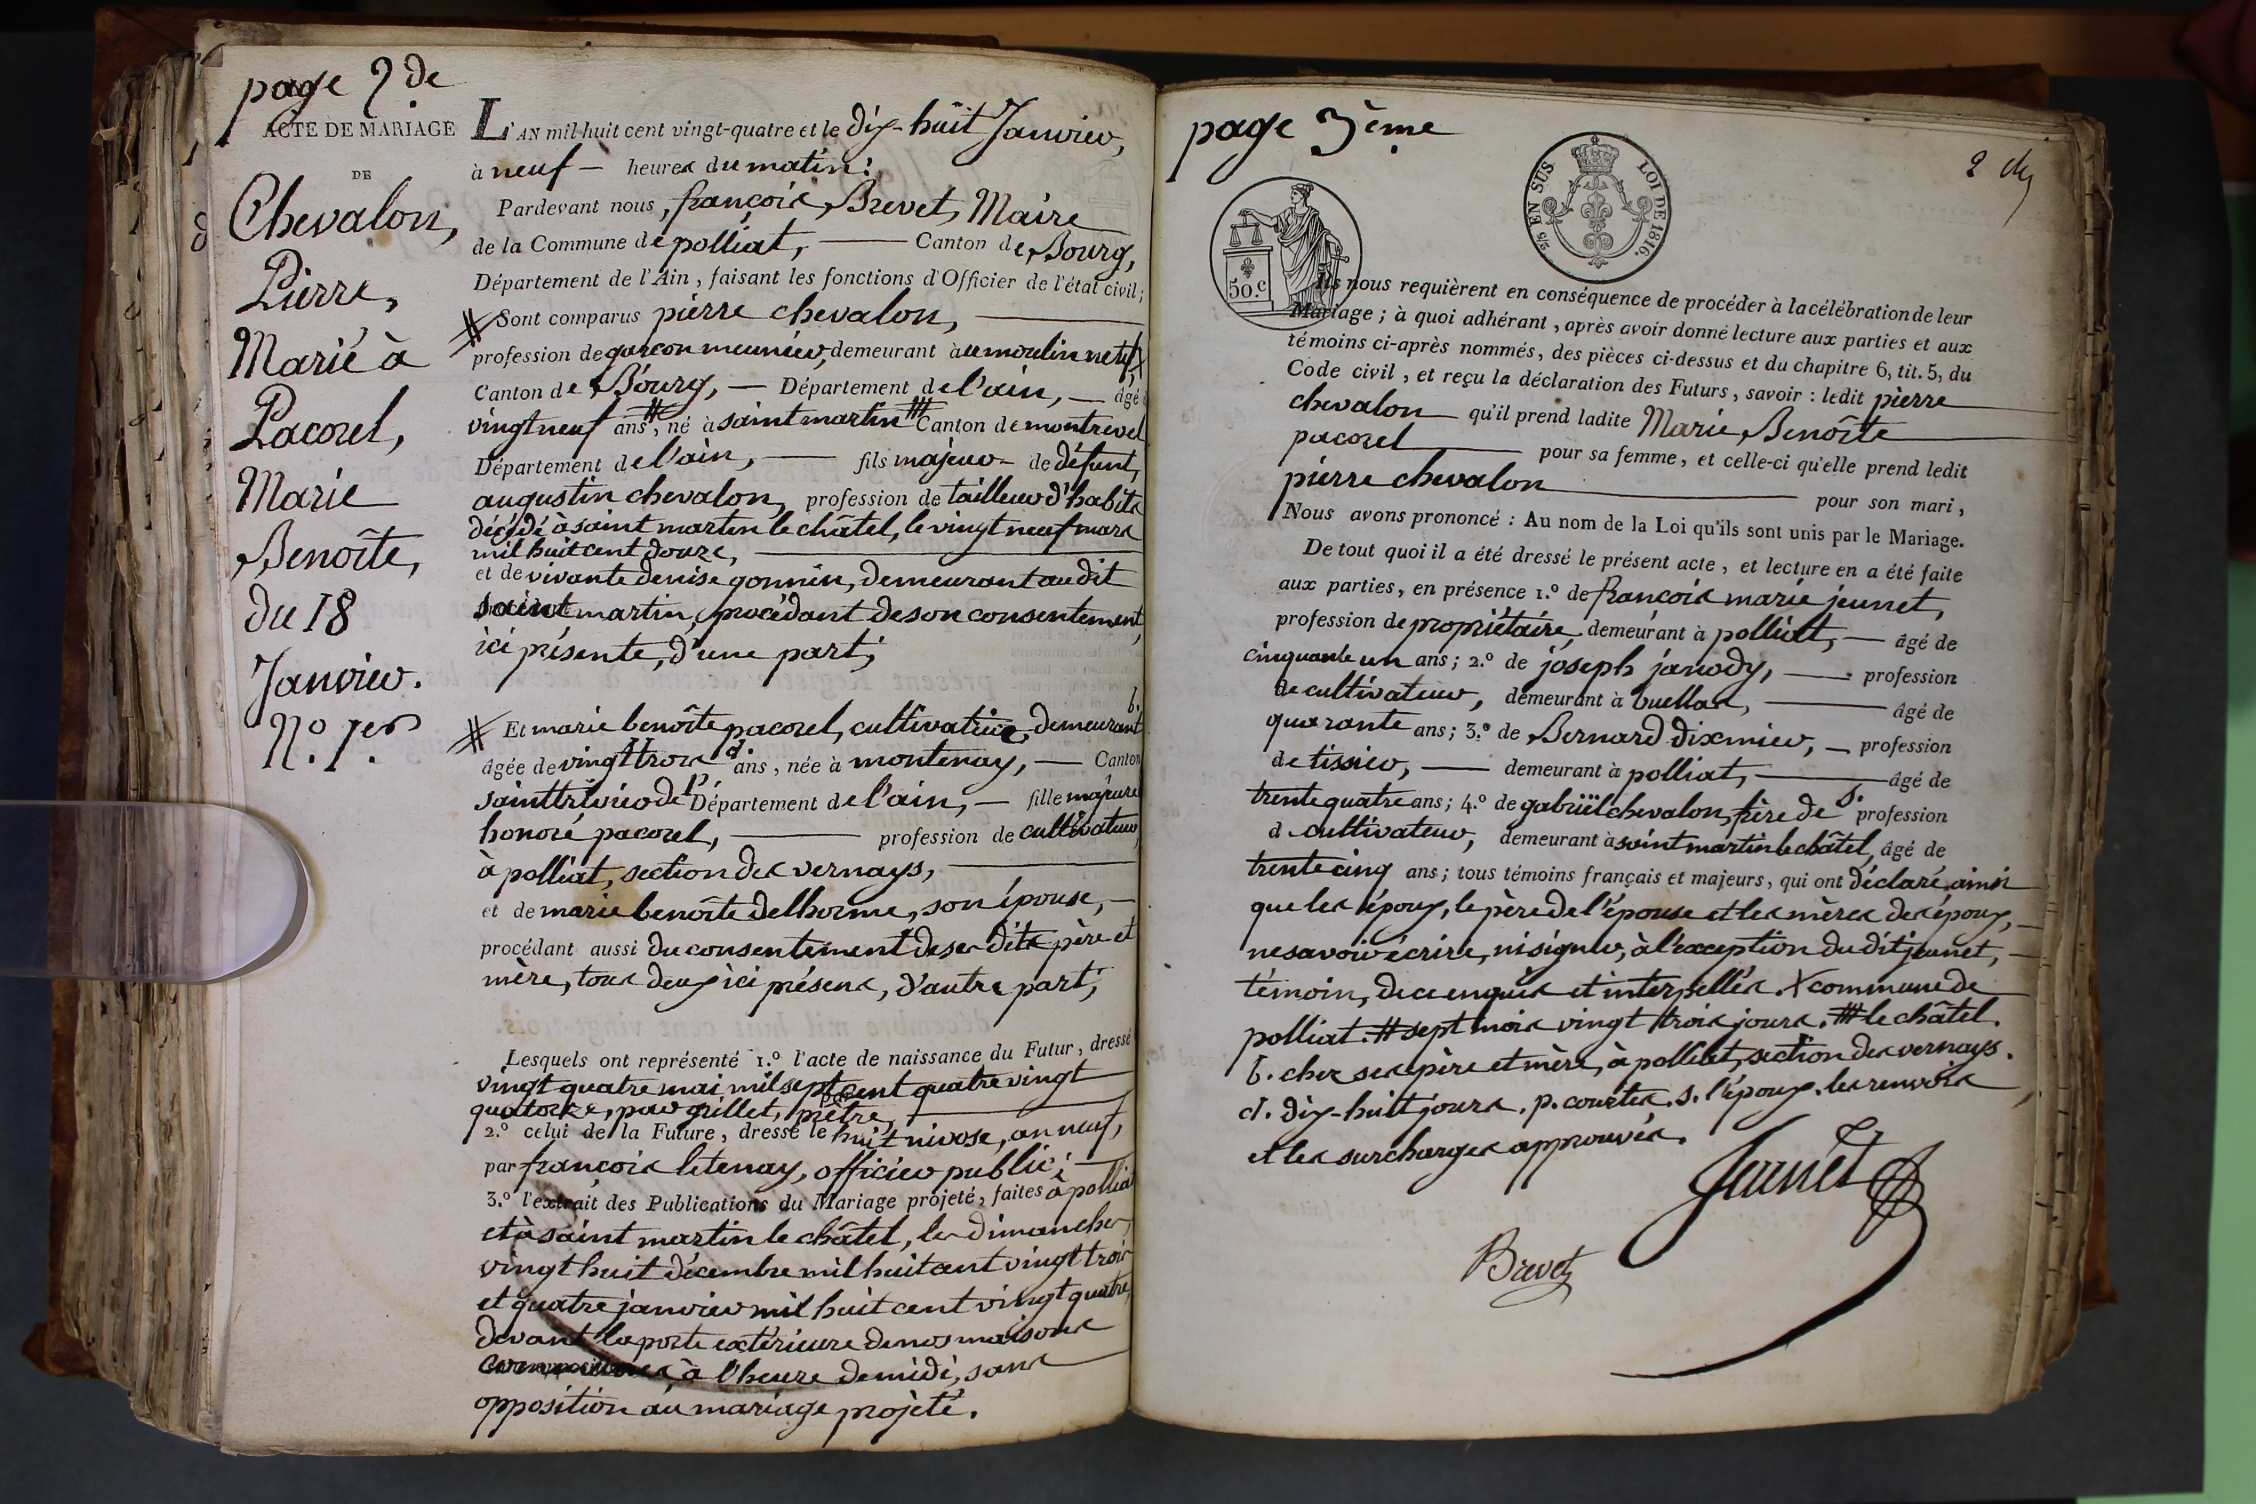 page 2de
ACTE DE MARIAGE
DE
Chevalon,
Pierre,
Marié à
Pacorel,
Marie
Benoîte,
du 18
Janvier.
N.o 1er.
L'AN mil huit cent vingt-quatre et le dix-huit Janvier,
à neuf — heures du matin:
Pardevant nous, françois Brevet, Maire
de la Commune de polliat, — Canton de Bourg,
Département de l'Ain, faisant les fonctions d'Officier de l'état civil;
# Sont comparus pierre chevalon, —
profession de garçon meunier, demeurant à au moulin neuf, X
Canton de Bourg, — Département de l'ain, — âgé
vingt neuf ans #, né à saint martin ## Canton de montrevel
Département de l'ain, — fils majeur — de défunt,
augustin chevalon, profession de tailleur d'habits
décédé à saint martin le châtel, le vingt neuf mars
mil huit cent douze, —
et de vivante denise gonnin, demeurant au dit
saint martin, procédant de son consentement,
ici présente, d'une part;
# Et marie benoîte pacorel, cultivatrice, demeurant b.
âgée de vingt trois ans d., née à montenay, — Canton
saint trivier de p. Département de l'ain, — fille majeure
honoré pacorel, — profession de cultivateur,
à polliat, section des vernays, —
et de marie benoîte delhorme, son épouse, —
procédant aussi du consentement de ses dits père et
mère, tous deux ici présens, d'autre part;
Lesquels ont représenté 1.º l'acte de naissance du Futur, dressé
vingt quatre mai mil sept cent quatre vingt
quatorze, par grillet, prêtre, —
2.º celui de la Future, dressé le huit nivose, an neuf,
par françois letenay, officier public; —
3.º l'extrait des Publications du Mariage projeté, faites à polliat
et à saint martin le châtel, les dimanches
vingt huit décembre mil huit cent vingt trois
et quatre janvier mil huit cent vingt quatre,
devant la porte extérieure de nos maisons
communes à l'heure de midi, sans
opposition au mariage projeté.
page 3ème
2 
EN SUS LOI DE 1816.
50.c
Ils nous requièrent en conséquence de procéder à la célébration de leur
Mariage; à quoi adhérant, après avoir donné lecture aux parties et aux
témoins ci-après nommés, des pièces ci-dessus et du chapitre 6, tit. 5, du
Code civil, et reçu la déclaration des Futurs, savoir: ledit pierre
chevalon — qu'il prend ladite Marie Benoîte
pacorel — pour sa femme, et celle-ci qu'elle prend ledit
pierre chevalon — pour son mari,
Nous avons prononcé: Au nom de la Loi qu'ils sont unis par le Mariage.
De tout quoi il a été dressé le présent acte, et lecture en a été faite
aux parties, en présence 1.º de françois marie jeunet,
profession de propriétaire, demeurant à polliat, — âgé de
cinquante un ans; 2.º de joseph janody, — profession
de cultivateur, demeurant à buellas, — âgé de
quarante ans; 3.º de Bernard dixmier, — profession
de tissier, — demeurant à polliat, — âgé de
trente quatre ans; 4.º de gabriël chevalon, frère de s. profession
d. cultivateur, demeurant à saint martin le châtel, âgé de
trente cinq ans; tous témoins français et majeurs, qui ont déclaré, ainsi
que les époux, le père de l'épouse et les mères des époux, —
ne savoir écrire, ni signer, à l'exception du dit jeunet, —
témoin, de ce enquis et interpellés. X commune de
polliat. # sept mois vingt trois jours. ## le châtel.
b. chez ses père et mère, à polliat, section des vernays.
d. dix-huit jours. p. courtes. s. l'époux. les renvois
et les surcharges approuvés.
Jeunet
Brevet